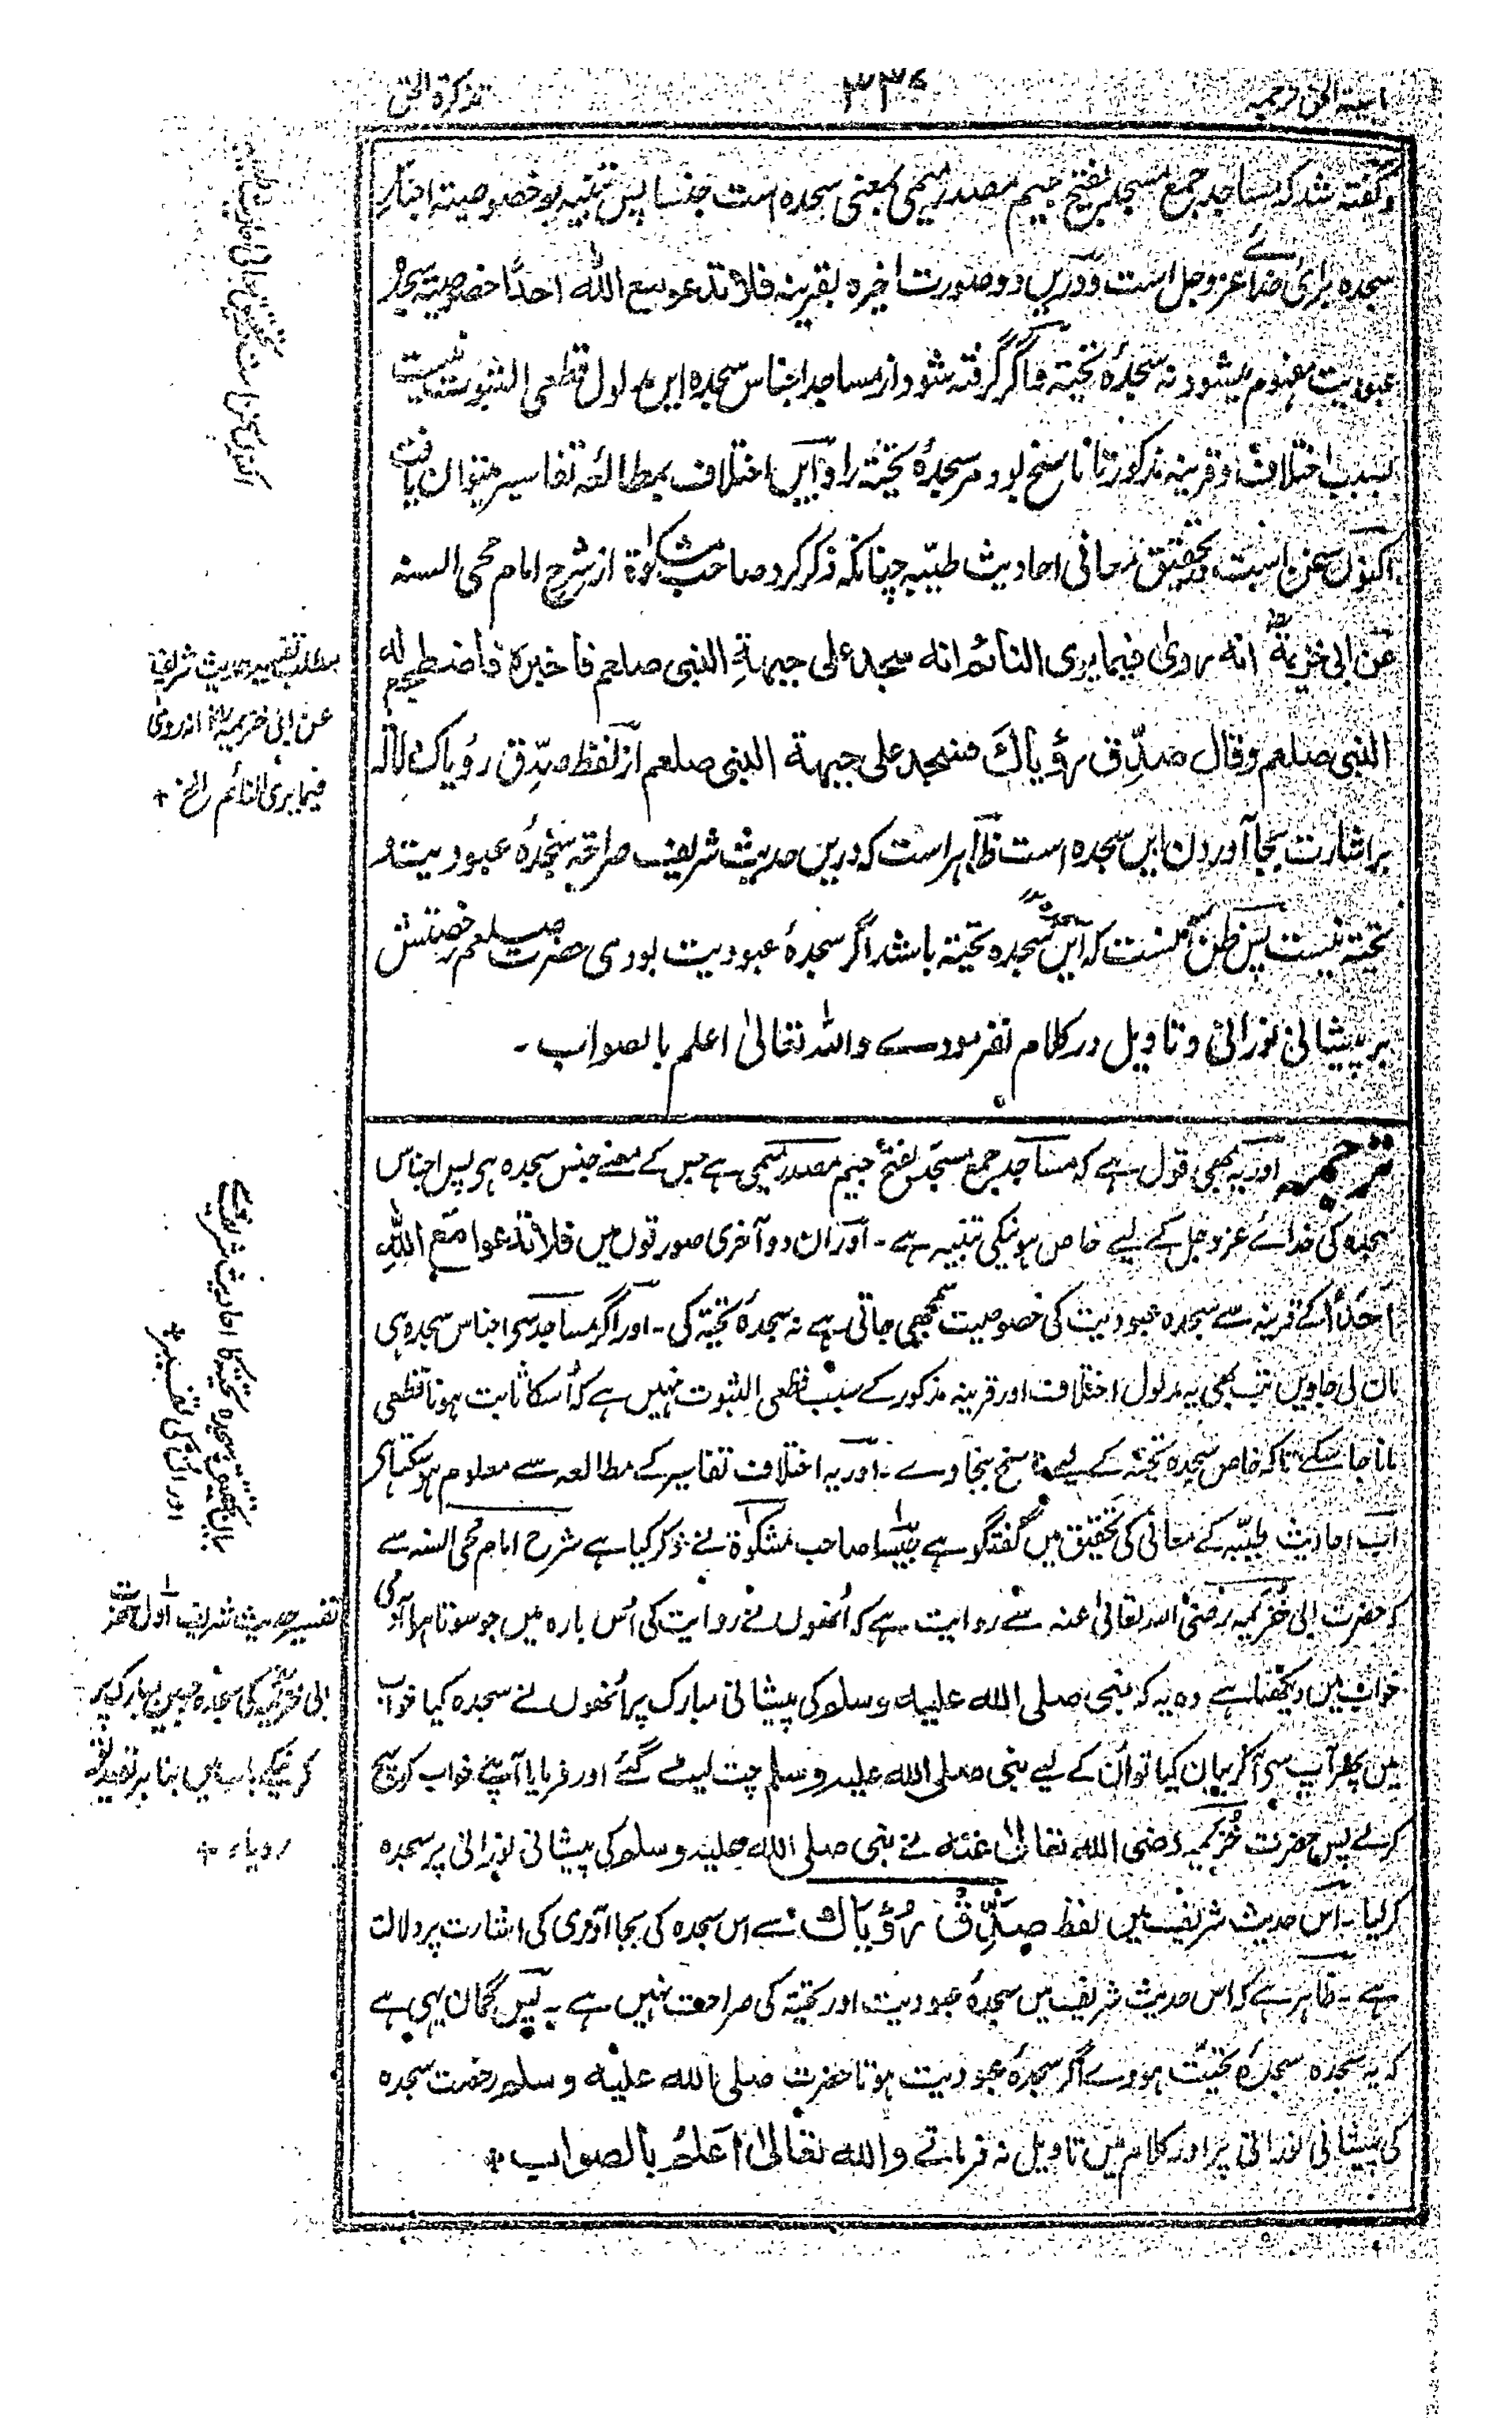 تذکرۃ الحق
وگفتہ شد کہ مساجد جمع مسجد بفتح جیم مصدر میمی بمعنی سجدہ است جنسا پس تنبیہ بو خصوصیتہ اجناس
سجدہ برای خدائے عز وجل است ودریں دو صورت اخیرہ بقرینہ فلا تدعو مع اللہ احداً خصوصیتہ سجدہ
عبودیت مفہوم میشود نہ سجدۂ تحیتہ فاگر گرفتہ شود از مساجد اجناس سجدہ ایں مدلول قطعی الثبوت نیست
بسبب اختلاف و قرینہ مذکور تا ناسخ بود مر سجدۂ تحیتہ را وایں اختلاف بمطالعہ تفاسیر میتوان یافت
اکنوں سخن است در تحقیق معانی احادیث طیّبہ چنانکہ ذکر کرد صاحب مشکوٰۃ از شرح امام محی السنہ
عن ابی خزیمۃ انہ روی فیما یری النائم انہ سجد علی جبہۃِ النبی صلعم فاخبرہ فاضطجع لہ
النبی صلعم وقال صدِّق رؤیاکَ فسجد علی جبہۃ النبی صلعم از لفظ صدِّق رؤیاک دلالۃ
بر اشارت بجا آوردن ایں سجدہ است ظاہر است کہ درین حدیث شریف صراحۃ سجدۂ عبودیت و
تحیتہ نیست پس ظن آنست کہ ایں سجدہ تحیتہ باشد اگر سجدۂ عبودیت بودی حضرت صلعم رخصتش
بر پیشانی نورانی و تاویل در کلام نفرمودے واللہ تعالیٰ اعلم بالصواب۔
ترجمہ اور یہ بھی قول ہے کہ مساجد جمع مسجد بفتح جیم مصدر میمی ہے جس کے معنے جنس سجدہ ہو پس اجناس
سجدہ کی خدائے عز وجل کے لیے خاص ہونیکی تنبیہ ہے۔ اور ان دو آخری صورتوں میں فلا تدعوا مع اللہِ
اَحَداً کے قرینہ سے سجدہ عبودیت کی خصوصیت سمجھی جاتی ہے نہ سجدۂ تحیتہ کی۔ اور اگر مساجد سے اجناس سجدہ ہی
مان لی جاویں تب بھی یہ مدلول اختلاف اور قرینہ مذکور کے سبب قطعی الثبوت نہیں ہے کہ اُسکا ثابت ہونا قطعی
مانا جا سکے تاکہ خاص سجدہ تحیتہ کے لیے ناسخ بنجاوے۔ اور یہ اختلاف تفاسیر کے مطالعہ سے معلوم ہو سکتا ہے
اب احادیث طیّبہ کے معانی کی تحقیق میں گفتگو ہے جیسا صاحب مشکوٰۃ نے ذکر کیا ہے شرح امام محی السنہ سے
کہ حضرت ابی خزیمہ رضی اللہ تعالیٰ عنہ سے روایت ہے کہ اُنھوں نے روایت کی اُس بارہ میں جو سوتا ہوا آدمی
خواب میں دیکھتا ہے وہ یہ کہ نبی صلی اللہ علیہ وسلم کی پیشانی مبارک پر اُنھوں نے سجدہ کیا خواب
میں پھر آپ سے آکر بیان کیا تو اُن کے لیے نبی صلی اللہ علیہ وسلم چت لیٹ گئے اور فرمایا اپنے خواب کو سچ
کرلے پس حضرت خُزیمہ رضی اللہ تعالیٰ عنہ نے نبی صلی اللہ علیہ وسلم کی پیشانی نورانی پر سجدہ
کرلیا۔ اس حدیث شریف میں لفظ صَدِّقْ رُؤْیَاکَ سے اس سجدہ کی بجا آوری کی اشارت پر دلالت
ہے۔ ظاہر ہے کہ اس حدیث شریف میں سجدۂ عبودیت اور تحیتہ کی صراحت نہیں ہے۔ پس گمان یہی ہے
کہ یہ سجدہ سجدۂ تحیّت ہووے اگر سجدۂ عبودیت ہوتا حضرت صلی اللہ علیہ وسلم رخصت سجدہ
کی پیشانی نورانی پر اور کلام میں تاویل نہ فرماتے واللہ تعالیٰ اَعلمُ بالصواب +
مطلب تفسیر حدیث شریف
عن ابی خزیمہ انہ روی
فیما یری النائم الخ +
بیان تحقیق سجدہ تحیتہ کا احادیث شریف سے
اور اُن کی تفسیر +
تفسیر حدیث شریف اول حضرت
ابی خزیمہ کی سجدہ جبین مبارک پر
کرنیکے باب میں بنا بر تصدیق
رویاء +